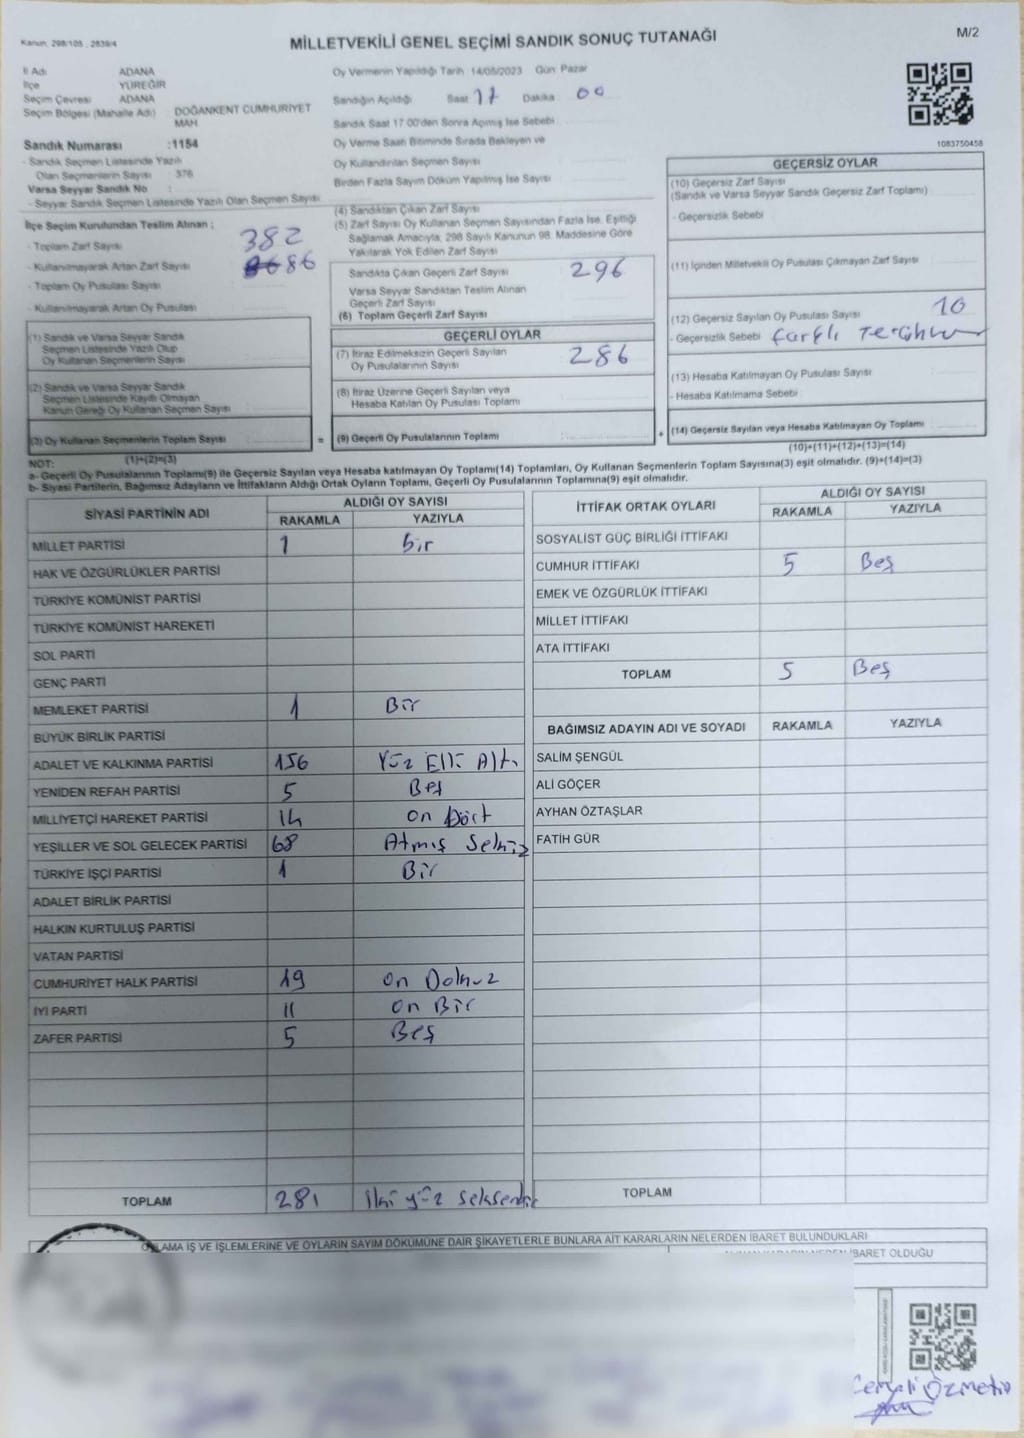 Kanun, 298/105 , 2839/4
MİLLETVEKİLİ GENEL SEÇİMİ SANDIK SONUÇ TUTANAĞI
M/2
İl Adı ADANA
İlçe YÜREĞİR
Seçim Çevresi ADANA
Seçim Bölgesi (Mahalle Adı) DOĞANKENT CUMHURİYET MAH.
Sandık Numarası :1154
- Sandık Seçmen Listesinde Yazılı
Olan Seçmenlerin Sayısı : 376
Varsa Seyyar Sandık No :
- Seyyar Sandık Seçmen Listesinde Yazılı Olan Seçmen Sayısı
Oy Vermenin Yapıldığı Tarih 14/05/2023 Gün Pazar
Sandığın Açıldığı Saat 17 Dakika 00
Sandık Saat 17.00'den Sonra Açımış İse Sebebi
Oy Verme Saati Bitiminde Sırada Bekleyen ve
Oy Kullandırılan Seçmen Sayısı
Birden Fazla Sayım Döküm Yapılmış İse Sayısı
1083750458
İlçe Seçim Kurulundan Teslim Alınan ;
- Toplam Zarf Sayısı 382
- Kullanılmayarak Artan Zarf Sayısı 86
- Toplam Oy Pusulası Sayısı
- Kullanılmayarak Artan Oy Pusulası
(1) Sandık ve Varsa Seyyar Sandık
Seçmen Listesinde Yazılı Olup
Oy Kullanan Seçmenlerin Sayısı
(2) Sandık ve Varsa Seyyar Sandık
Seçmen Listesinde Kayıtlı Olmayan
Kanun Gereği Oy Kullanan Seçmen Sayısı
(3) Oy Kullanan Seçmenlerin Toplam Sayısı
(1)+(2)=(3)
(4) Sandıktan Çıkan Zarf Sayısı
(5) Zarf Sayısı Oy Kullanan Seçmen Sayısından Fazla İse, Eşitliği
Sağlamak Amacıyla, 298 Sayılı Kanunun 98. Maddesine Göre
Yakılarak Yok Edilen Zarf Sayısı
Sandıkta Çıkan Geçerli Zarf Sayısı 296
Varsa Seyyar Sandıktan Teslim Alınan
Geçerli Zarf Sayısı
(6) Toplam Geçerli Zarf Sayısı
GEÇERLİ OYLAR
(7) İtiraz Edilmeksizin Geçerli Sayılan
Oy Pusulalarının Sayısı 286
(8) İtiraz Üzerine Geçerli Sayılan veya
Hesaba Katılan Oy Pusulası Toplamı
= (9) Geçerli Oy Pusulalarının Toplamı
GEÇERSİZ OYLAR
(10) Geçersiz Zarf Sayısı
(Sandık ve Varsa Seyyar Sandık Geçersiz Zarf Toplamı)
- Geçersizlik Sebebi
(11) İçinden Milletvekili Oy Pusulası Çıkmayan Zarf Sayısı
(12) Geçersiz Sayılan Oy Pusulası Sayısı 10
- Geçersizlik Sebebi farklı
(13) Hesaba Katılmayan Oy Pusulası Sayısı
- Hesaba Katılmama Sebebi
+ (14) Geçersiz Sayılan veya Hesaba Katılmayan Oy Toplamı
(10)+(11)+(12)+(13)=(14)
NOT:
a- Geçerli Oy Pusulalarının Toplamı(9) ile Geçersiz Sayılan veya Hesaba katılmayan Oy Toplamı(14) Toplamları, Oy Kullanan Seçmenlerin Toplam Sayısına(3) eşit olmalıdır. (9)+(14)=(3)
b- Siyasi Partilerin, Bağımsız Adayların ve İttifakların Aldığı Ortak Oyların Toplamı, Geçerli Oy Pusulalarının Toplamına(9) eşit olmalıdır.
SİYASİ PARTİNİN ADI ALDIĞI OY SAYISI
RAKAMLA YAZIYLA
MİLLET PARTİSİ 1 bir
HAK VE ÖZGÜRLÜKLER PARTİSİ
TÜRKİYE KOMÜNİST PARTİSİ
TÜRKİYE KOMÜNİST HAREKETİ
SOL PARTİ
GENÇ PARTİ
MEMLEKET PARTİSİ 1 Bir
BÜYÜK BİRLİK PARTİSİ
ADALET VE KALKINMA PARTİSİ 156 Yüz Elli Altı
YENİDEN REFAH PARTİSİ 5 Beş
MİLLİYETÇİ HAREKET PARTİSİ 14 on Dört
YEŞİLLER VE SOL GELECEK PARTİSİ 68 Atmış Sekiz
TÜRKİYE İŞÇİ PARTİSİ 1 Bir
ADALET BİRLİK PARTİSİ
HALKIN KURTULUŞ PARTİSİ
VATAN PARTİSİ
CUMHURİYET HALK PARTİSİ 19 on Dokuz
İYİ PARTİ 11 on Bir
ZAFER PARTİSİ 5 Beş
TOPLAM 281 iki yüz seksenbir
İTTİFAK ORTAK OYLARI ALDIĞI OY SAYISI
RAKAMLA YAZIYLA
SOSYALİST GÜÇ BİRLİĞİ İTTİFAKI
CUMHUR İTTİFAKI 5 Beş
EMEK VE ÖZGÜRLÜK İTTİFAKI
MİLLET İTTİFAKI
ATA İTTİFAKI
TOPLAM 5 Beş
BAĞIMSIZ ADAYIN ADI VE SOYADI RAKAMLA YAZIYLA
SALİM ŞENGÜL
ALİ GÖÇER
AYHAN ÖZTAŞLAR
FATİH GÜR
TOPLAM
OYLAMA İŞ VE İŞLEMLERİNE VE OYLARIN SAYIM DÖKÜMÜNE DAİR ŞİKAYETLERLE BUNLARA AİT KARARLARIN NELERDEN İBARET BULUNDUKLARI
İBARET OLDUĞU